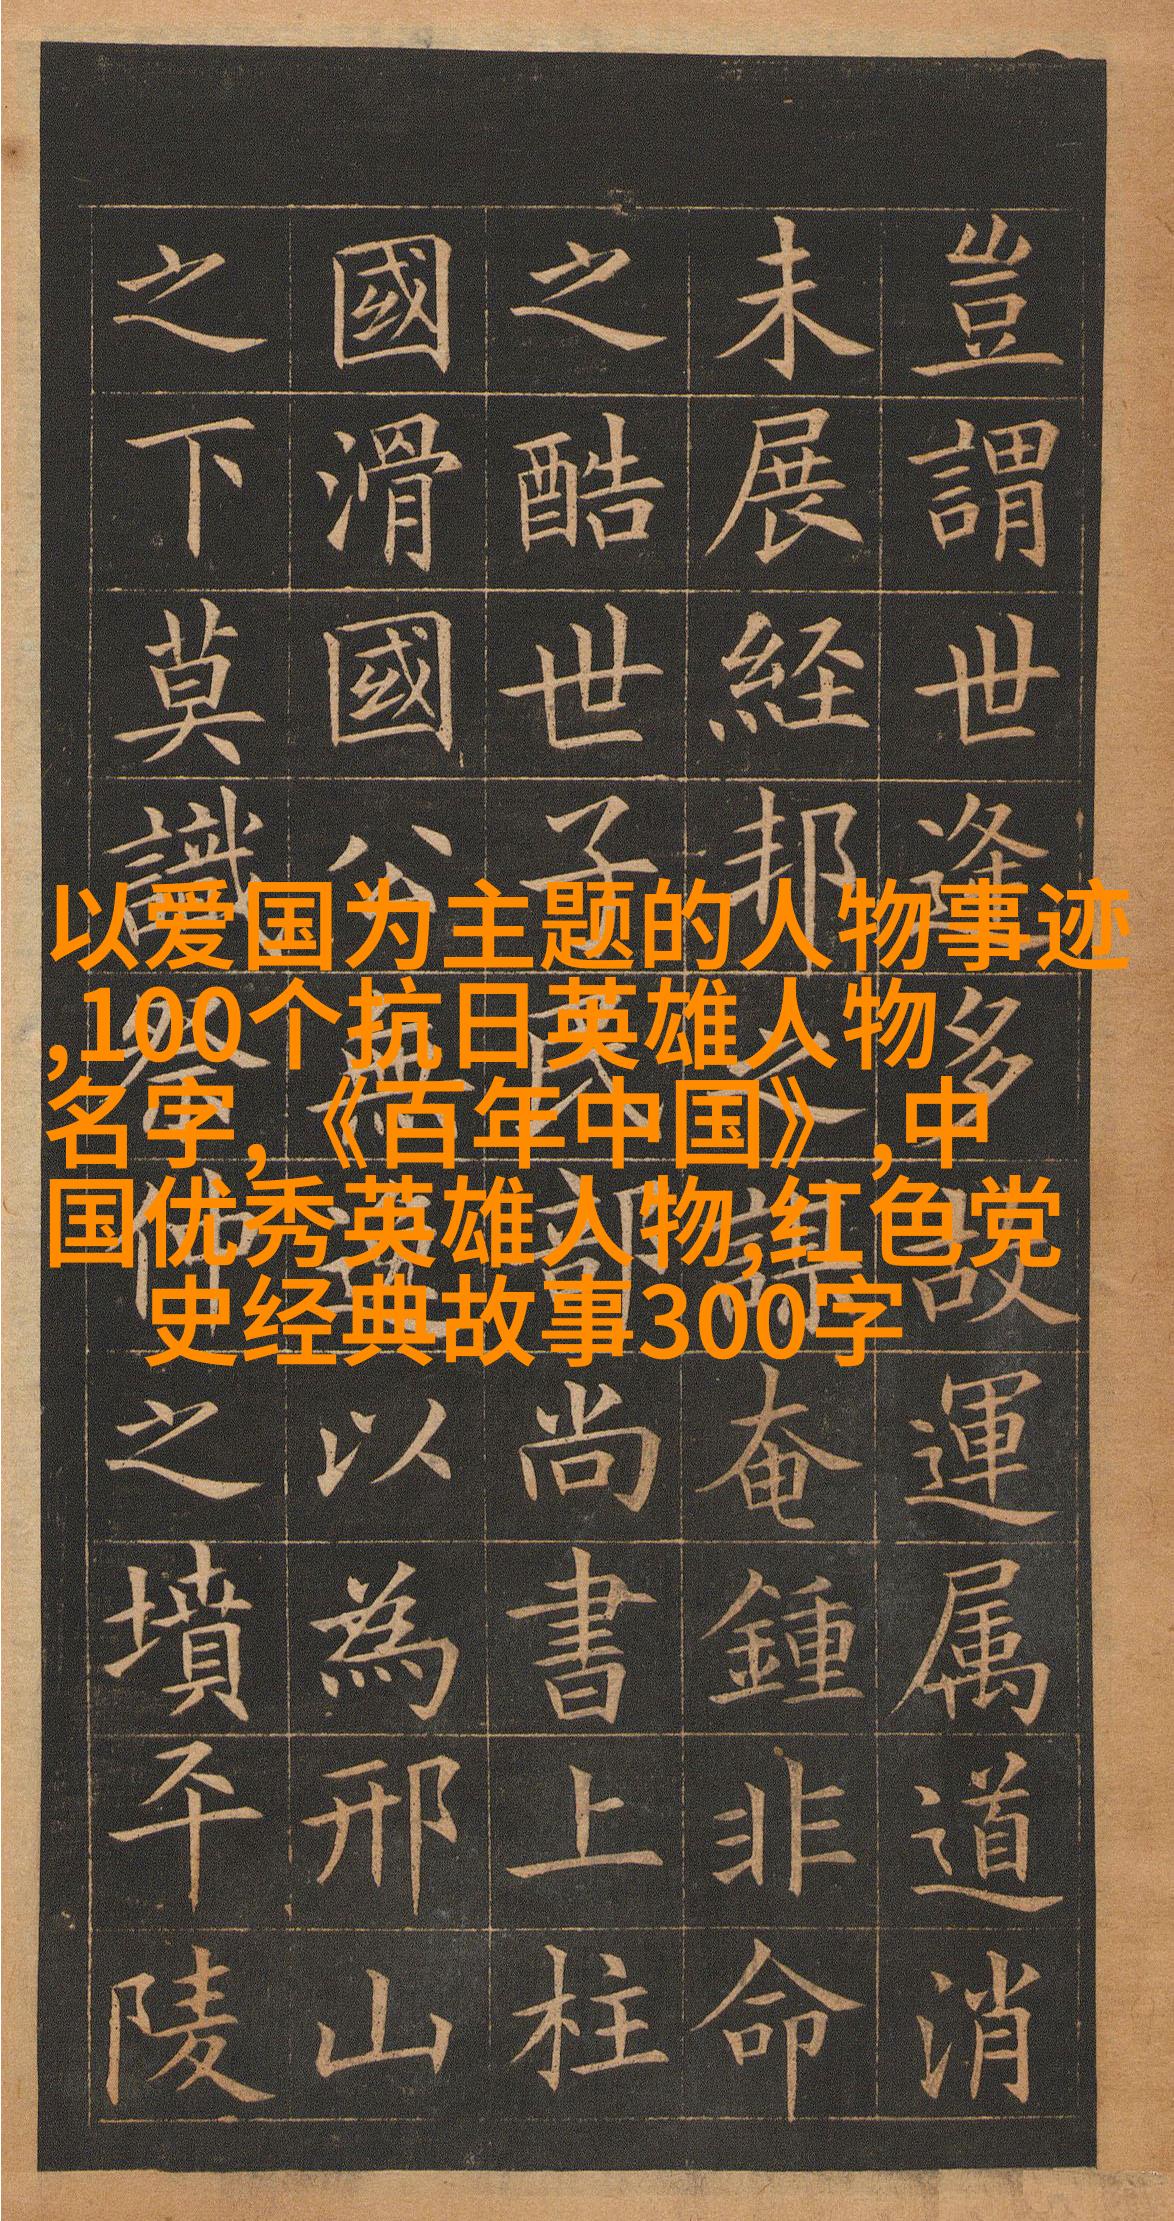 豈謂世逢多故運属道消
未展経邦之謀奄鍾非命
之酷世子民部尚書上柱
國滑國公無逸以為邢山
之下莫識祭仲之墳平陵
以爱国为主题的人物事迹
,100个抗日英雄人物
名字，《百年中国》,中
国优秀英雄人物,红色党
史经典故事300字